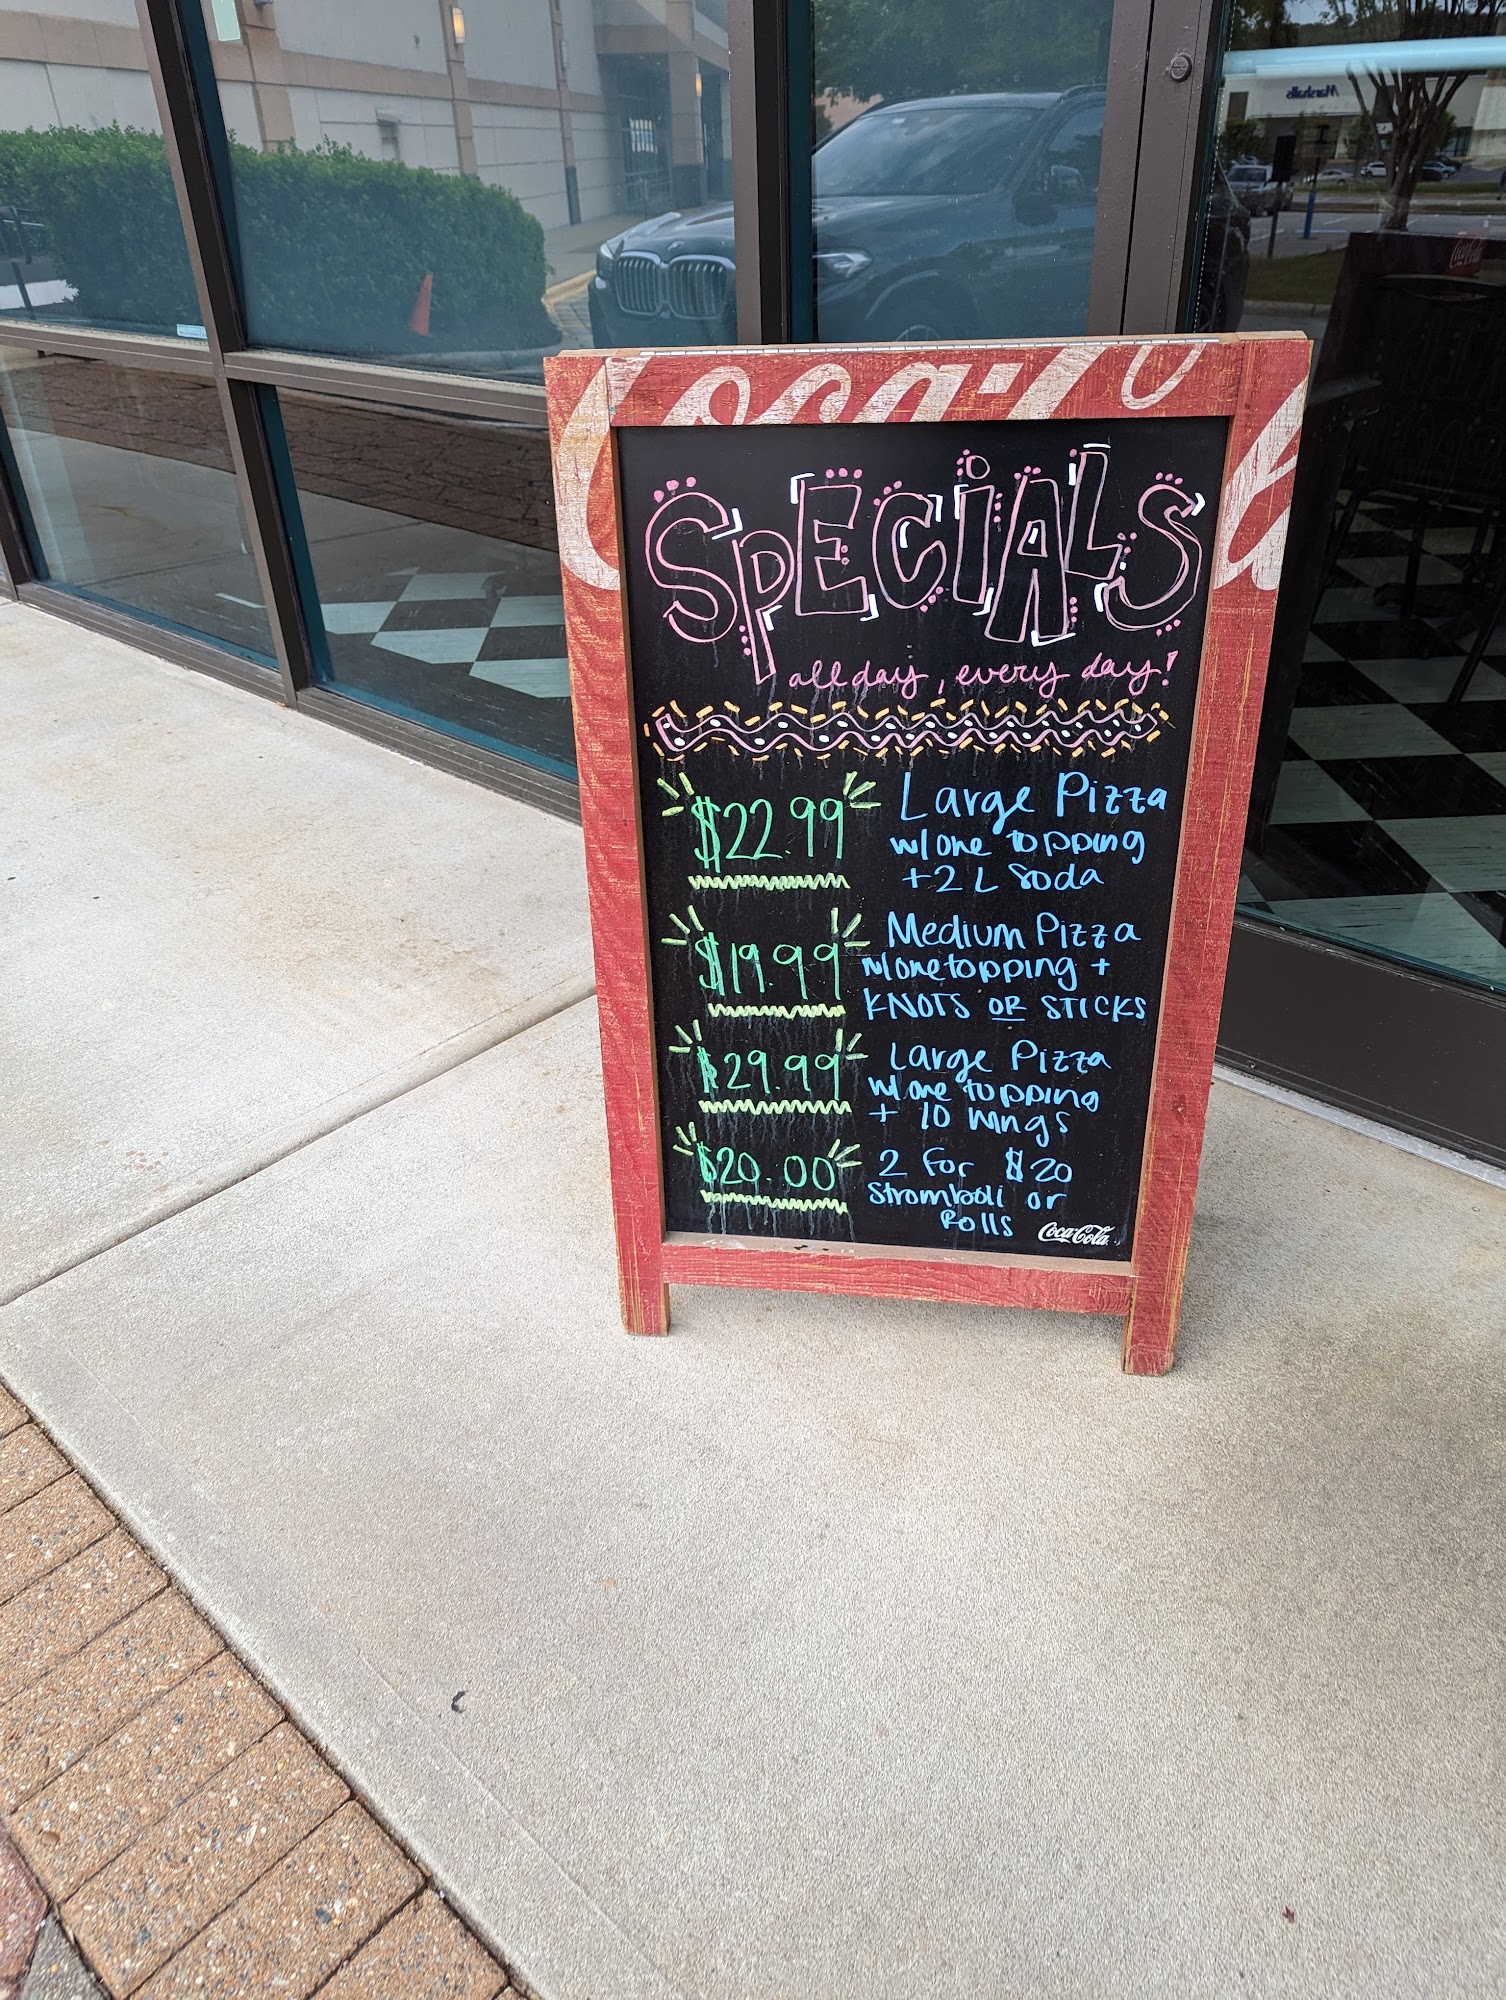 Coca-Cola
SPECIALS
all day, every day!
$22.99
Large Pizza
w/one topping
+2 L Soda
$19.99
Medium Pizza
w/one topping +
KNOTS OR STICKS
$29.99
Large Pizza
w/one topping
+ 10 wings
$20.00
2 for $20
Stromboli or
Rolls
Coca-Cola
Marshalls
Coca-Cola